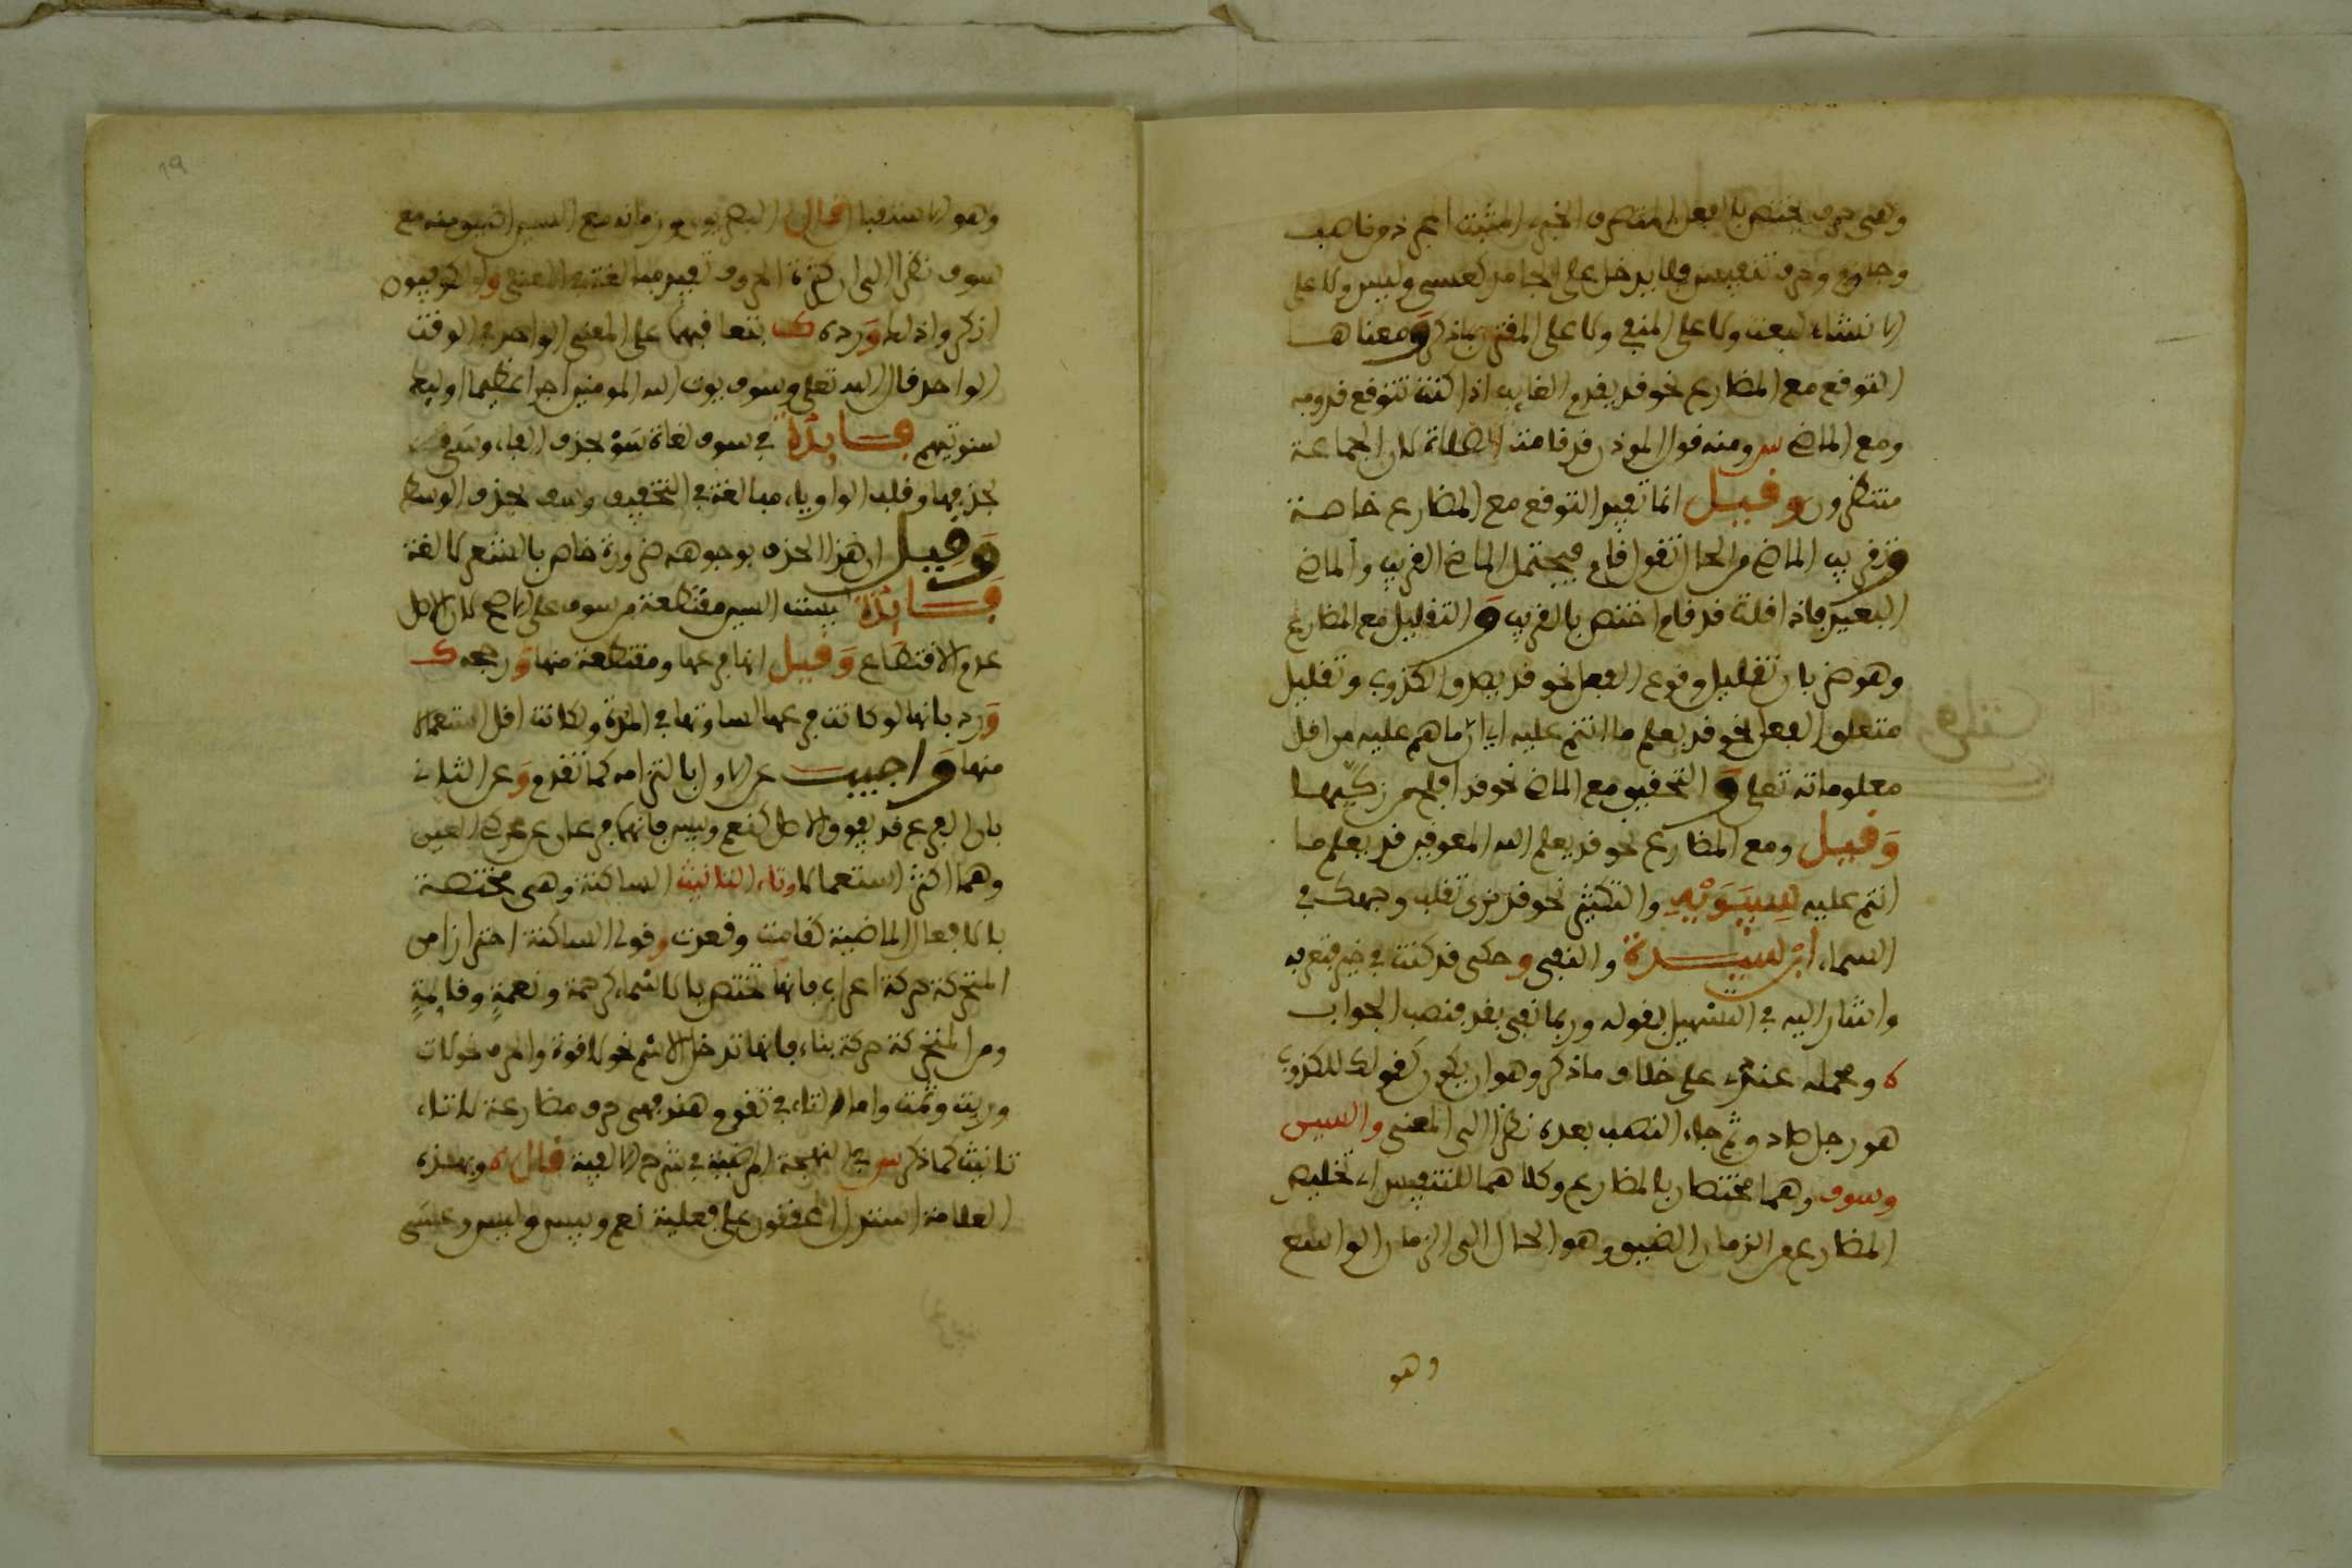 وهي حرف يختص بالفعل المتصرف الخبري المثبت المجرد من ناصب
وجازم وحرف تنفيس فلا يدخل على الجامد كعسى وليس ولا على
الانشاء كبعت ولا على المنفي ولا على المقترن بما ذكر ومعناها
التوقع مع المضارع نحو قد يقدم الغايب اذا كنت تتوقع قدومه
ومع الماضي س ومنه قول الموذن قد قامت الصلاة لان الجماعة
منتظرون وقيل انما تفيد التوقع مع المضارع خاصة
وتقريب الماضي من الحال تقول قام فيحتمل الماضي القريب والماضي
البعيد فاذا قلت قد قام اختص بالقريب و التقليل مع المضارع
وهو ضربان تقليل وقوع الفعل نحو قد يصدق الكذوب وتقليل
متعلق الفعل نحو قد يعلم ما انتم عليه اي ان ما هم عليه من اقل
معلوماته تعلى و التحقيق مع الماضي نحو قد افلح من زكيها
وقيل ومع المضارع نحو قد يعلم الله المعوقين قد يعلم ما
انتم عليه لسيبويه والتكثير نحو قد نرى تقلب وجهك في
السماء ابن سيدة والنفي وحكى قد كنت في خير فتعرفه
واشار اليه في التسهيل بقوله وربما نفي بقد فنصب الجواب
ه ومحمله عندي على خلاف ما ذكر وهو ان يكون كقولك للكذوب
هو رجل صادق ثم جاء النصب بعده نظرا الى المعنى والسين
وسوف وهما مختصان بالمضارع وكلاهما للتنفيس اي تخليص
المضارع من الزمان الضيق وهو الحال الى الزمان الواسع
وهو
19
وهو الاستقبال قال البصريون وزمانه مع السين اضيق منه مع
سوف نظرا الى ان كثرة الحروف تفيد مبالغة في المعنى والكوفيون
انكروا ذلك ورده ك بتعاقبهما على المعنى الواحد في الوقت
الواحد قال الله تعلى وسوف يوت الله المومنين اجرا عظيما اوليك
سنوتيهم فايدة في سوف لغات سو بحذف الفاء وسي
بحذفها وقلب الواو ياء مبالغة في التخفيف وسف بحذف الوسط
وقيل ان هذا الحذف بوجوهه ضرورة خاص بالشعر لا لغة
فايدة ليست السين مقتطعة من سوف على الاصح لان الاصل
عدم الاقتطاع وقيل انها فرعها ومقتطعة منها ورجحه ك
ورد بانها لو كانت فرعها لساوتها في المدة ولكانت اقل استعمالا
منها واجيب عن الاول بالتزامه كما تقدم وعن الثاني
بان الفرع قد يفوق الاصل كنعم وبيس فانهما فرعان عن محرك العين
وهما اكثر استعمالا وتاء التانيث الساكنة وهي مختصة
بالافعال الماضية كقامت وقعدت وقولي الساكنة احترازا من
المتحركة حركة اعراب فانها تختص بالاسماء كرحمة ونعمة وقايمة
ومن المتحركة حركة بناء فانها تدخل الاسم نحو لا قوة والحرف نحو لات
وربت وثمت واما التاء في تقوم هند فهي حرف مضارعة لا تاء
تانيث كما ذكر س في البهجة المرضية في شرح الالفية قال ه وبهذه
العلامة استدل المحققون على فعلية نعم وبيس وليس وعسى